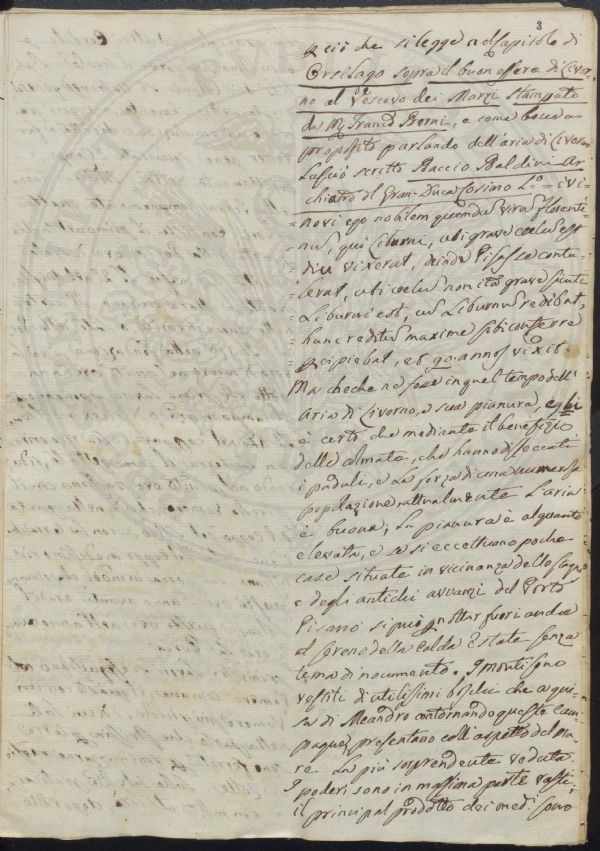 3
ciò che si legge nel Capitolo di
Orsilago sopra il buon essere di Livor=
no al Vescovo dei Marzi stampato
da Franc.o Berni, e come bocca a
proposito parlando dell'aria di Livorno
Lasciò scritto Baccio Baldini Ar=
chiatro del Gran-Duca Cosimo I.o = ivi =
= novi ego nobilem quendam virum florenti=
= num, qui Liburni, ubi grave coelum est
= diu vixerat, deinde Pisas se contu=
= lerat, ubi coelum non ita grave sicuti
= Liburni est, cum Liburnum redibat,
= hanc reditum maxime sibi conferre
= percipiebat, et 90. annos vixit =
Ma checchè ne fosse in quel tempo dell'
Aria di Livorno, e sua pianura, egli
è certo, che mediante il benefizio
delle colmate, che hanno disseccati
i paduli, e la forza di una numerosa
popolazione attualmente l'aria
è buona; La pianura è alquanto
elevata, e se si eccettuono poche
case situate in vicinanza dello stagno
e degli antichi avvanzi del Porto
Pisano si può star fuori anche
al sereno della calda Estate senza
tema di nocumento. I monti sono
vestiti di utilissimi boschi che a gui=
sa di Meandro contornando queste cam=
pagne, presentano coll'aspetto del ma=
re. La più sorprendente veduta.
I poderi sono in massima parte vasti;
il principal prodotto dei med.i sono